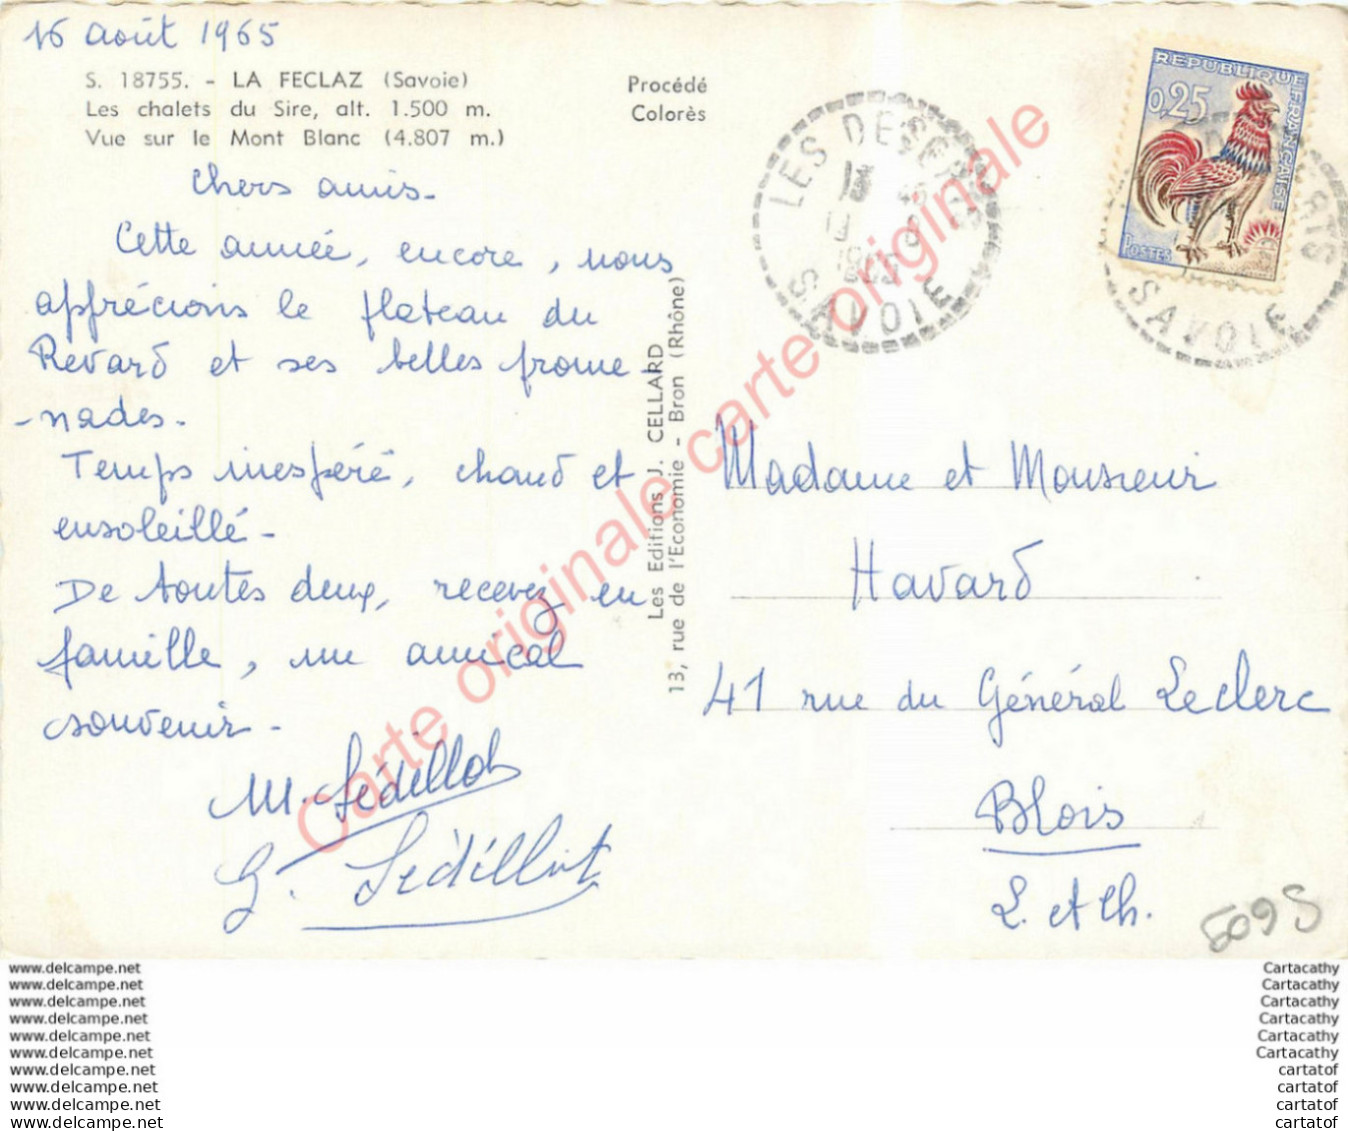 16 Août 1965
S. 18755. - LA FECLAZ (Savoie)
Les chalets du Sire, alt. 1.500 m.
Vue sur le Mont Blanc (4.807 m.)
Procédé
Colorès
Chers amis-
Cette année, encore, nous
apprécions le plateau du
Revard et ses belles prome-
-nades-
Temps inespéré, chaud et
ensoleillé-
De toutes deux, recevez en
famille, un amical
souvenir-
M. Sédillot
G. Sédillot
Les Editions J. CELLARD
13, rue de l'Economie - Bron (Rhône)
LES DESERTS
1965
SAVOIE
REPUBLIQUE FRANÇAISE
0,25
POSTES
SAVOIE
Madame et Monsieur
Havard
41 rue du Général Leclerc
Blois
L. et Ch.
5095
Carte originale carte originale carte originale
www.delcampe.net
www.delcampe.net
www.delcampe.net
www.delcampe.net
www.delcampe.net
www.delcampe.net
www.delcampe.net
www.delcampe.net
www.delcampe.net
www.delcampe.net
Cartacathy
Cartacathy
Cartacathy
Cartacathy
Cartacathy
Cartacathy
cartatof
cartatof
cartatof
cartatof